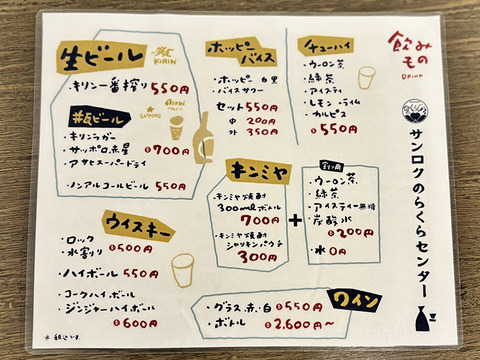 生ビール
KIRIN
・キリン一番搾り 550円
#瓶ビール
SAPPORO
Asahi
・キリンラガー
・サッポロ赤星
・アサヒスーパードライ
700円
・ノンアルコールビール 550円
ウイスキー
・ロック
・水割り
500円
・ハイボール 550円
・コークハイボール
・ジンジャーハイボール
600円
※税込です。
ホッピー
バイス
・ホッピー 白黒
・バイスサワー
セット 550円
中 200円
外 350円
チューハイ
・ウーロン茶
・緑茶
・アイスティ
・レモン・ライム
・カルピス
550円
キンミヤ
・キンミヤ焼酎
300mlボトル
700円
・キンミヤ焼酎
シャリキンパウチ
300円
+
割り用
・ウーロン茶
・緑茶
・アイスティー無糖
・炭酸水
200円
・水 0円
ワイン
・グラス 赤・白 550円
・ボトル 2,600円〜
飲み
もの
DRINK
サンロクのらくらセンター